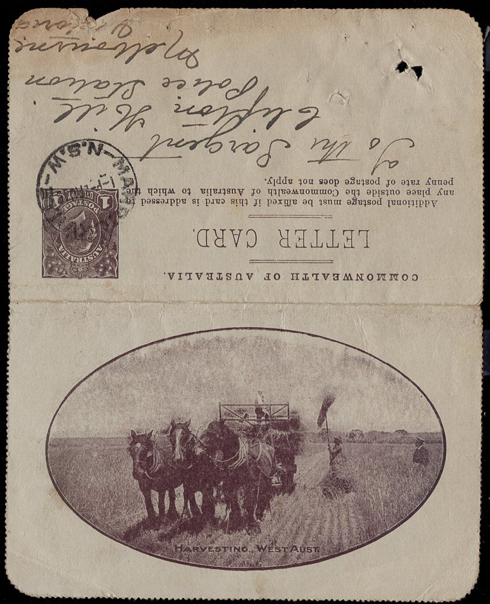 COMMONWEALTH OF AUSTRALIA.
LETTER CARD.
Additional postage must be affixed if this card is addressed to
any place outside the Commonwealth of Australia to which the
penny rate of postage does not apply.
AUSTRALIA
1 POSTAGE
N.S.W
To the Sargent
Clifton Hill
Police Station
Melbourne
Victoria
HARVESTING, WEST AUST.